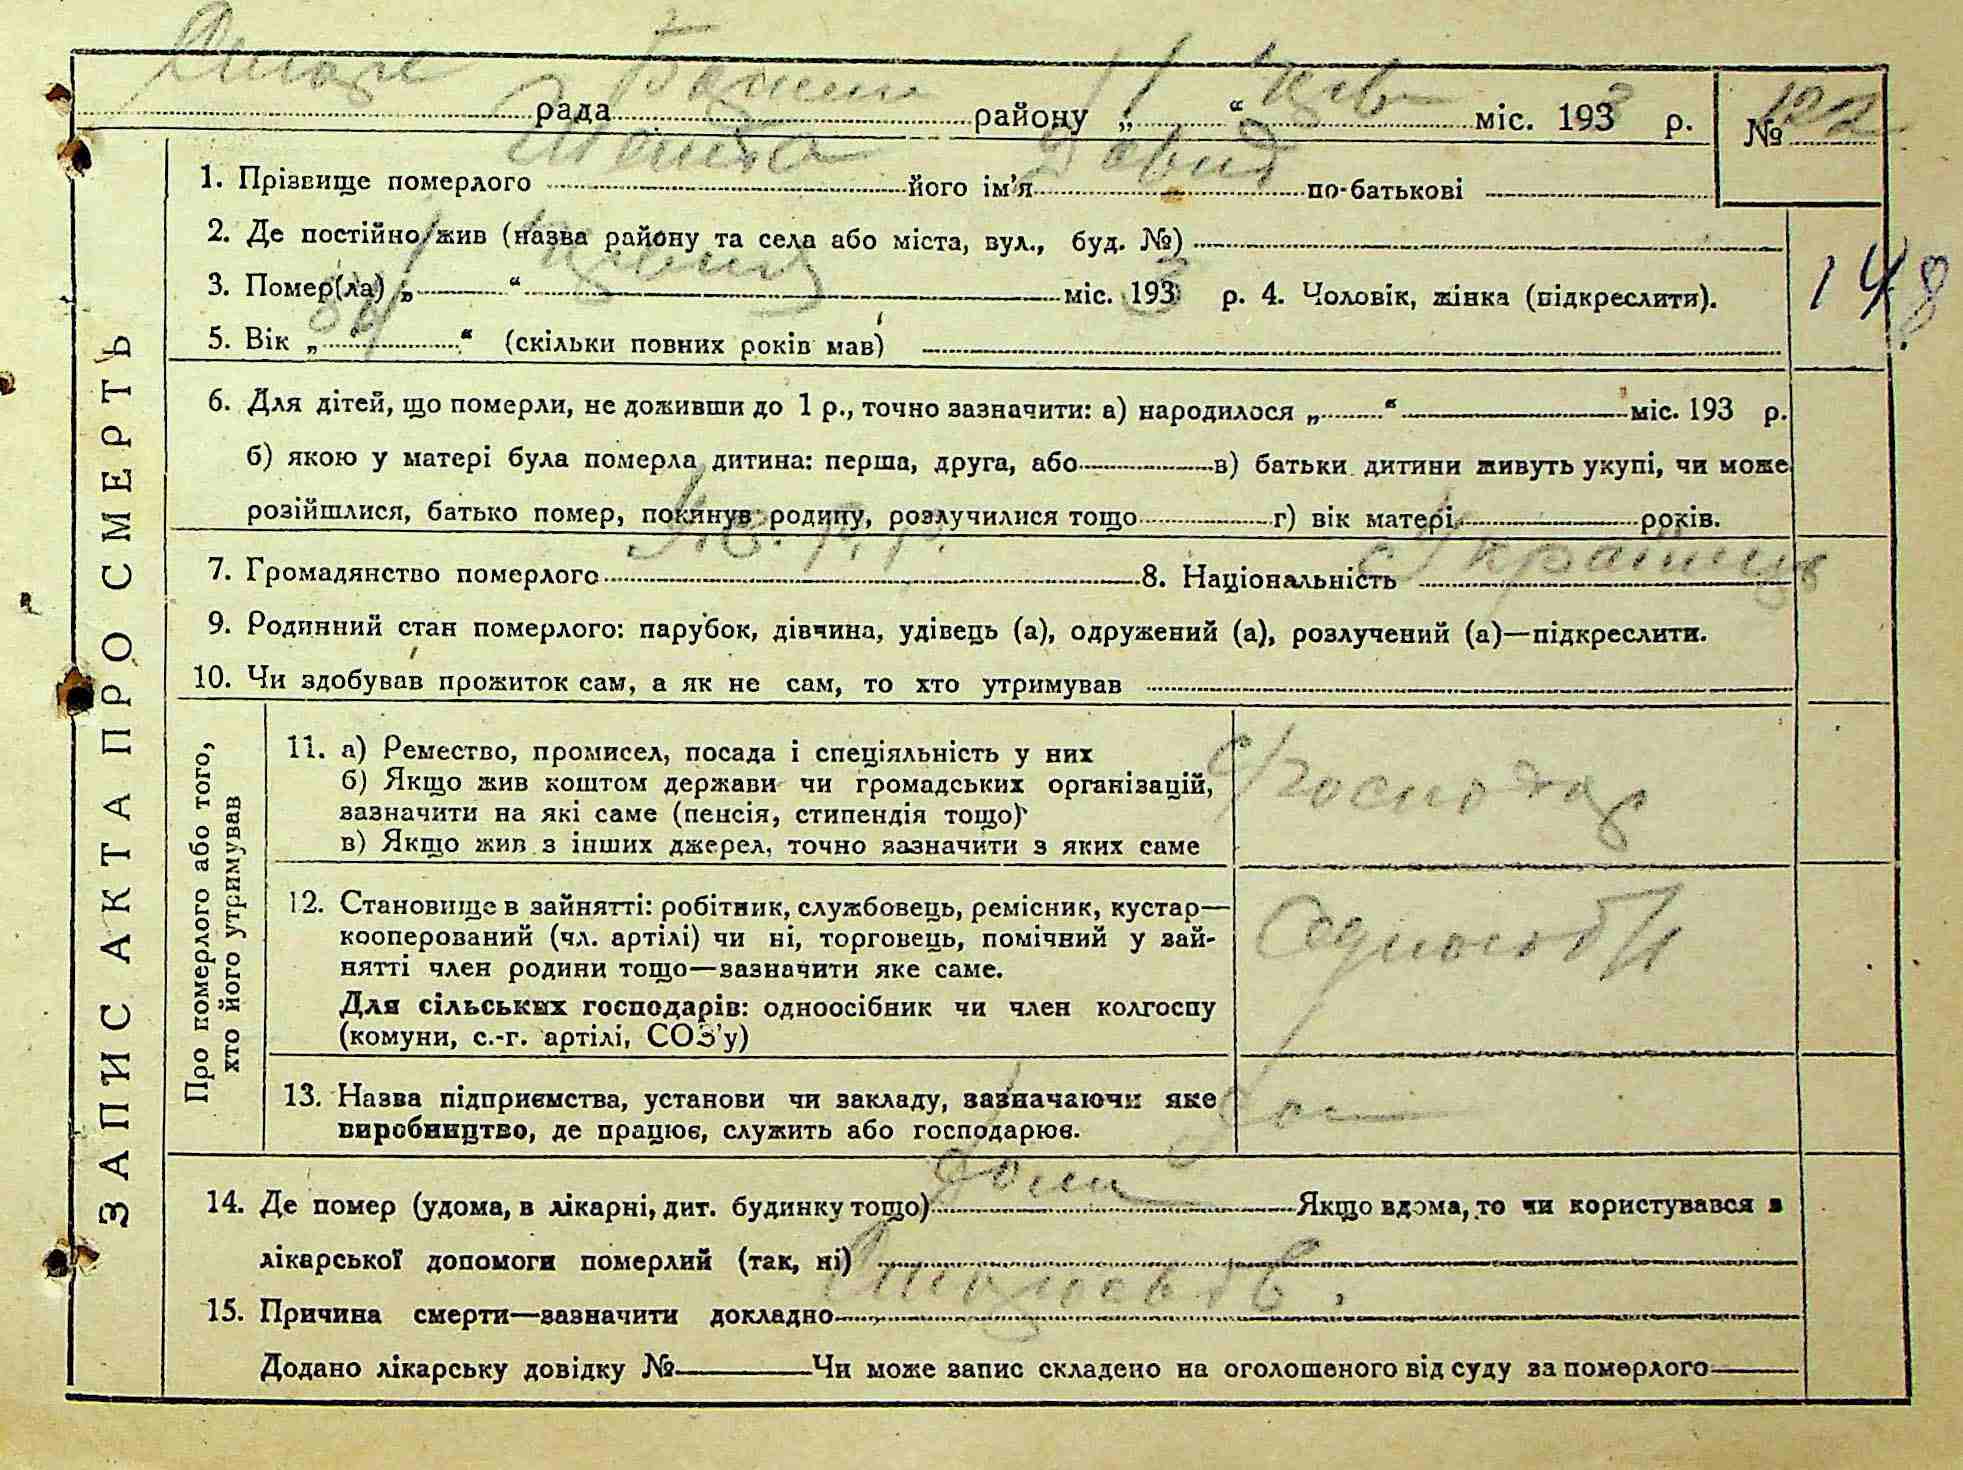 рада району „ “ міс. 1933 р. № 122
1. Прізвище померлого його ім’я Давид по-батькові
2. Де постійно жив (назва району та села або міста, вул., буд. №)
3. Помер(ла) „ “ міс. 1933 р. 4. Чоловік, жінка (підкреслити).
148
5. Вік „ “ (скільки повних років мав)
6. Для дітей, що померли, не доживши до 1 р., точно зазначити: а) народилося „ “ міс. 193 р.
б) якою у матері була померла дитина: перша, друга, або в) батьки дитини живуть укупі, чи може
розійшлися, батько помер, покинув родину, розлучилися тощо г) вік матері років.
7. Громадянство померлого 8. Національність Українець
9. Родинний стан померлого: парубок, дівчина, удівець (а), одружений (а), розлучений (а)—підкреслити.
10. Чи здобував прожиток сам, а як не сам, то хто утримував
ЗАПИС АКТА ПРО СМЕРТЬ
Про померлого або того,
хто його утримував
11. а) Ремество, промисел, посада і спеціяльність у них
б) Якщо жив коштом держави чи громадських організацій,
зазначити на які саме (пенсія, стипендія тощо)
в) Якщо жив з інших джерел, точно зазначити з яких саме
с/господар
12. Становище в зайнятті: робітник, службовець, ремісник, кустар—
кооперований (чл. артілі) чи ні, торговець, помічний у зай-
нятті член родини тощо—зазначити яке саме.
Для сільських господарів: одноосібник чи член колгоспу
(комуни, с.-г. артілі, СОЗ’у)
13. Назва підприємства, установи чи закладу, зазначаючи яке
виробництво, де працює, служить або господарює.
14. Де помер (удома, в лікарні, дит. будинку тощо) дома Якщо вдома, то чи користувався з
лікарської допомоги померлий (так, ні)
15. Причина смерти—зазначити докладно
Додано лікарську довідку № Чи може запис складено на оголошеного від суду за померлого